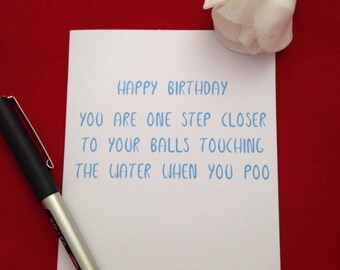 HAPPY BIRTHDAY
YOU ARE ONE STEP CLOSER
TO YOUR BALLS TOUCHING
THE WATER WHEN YOU POO